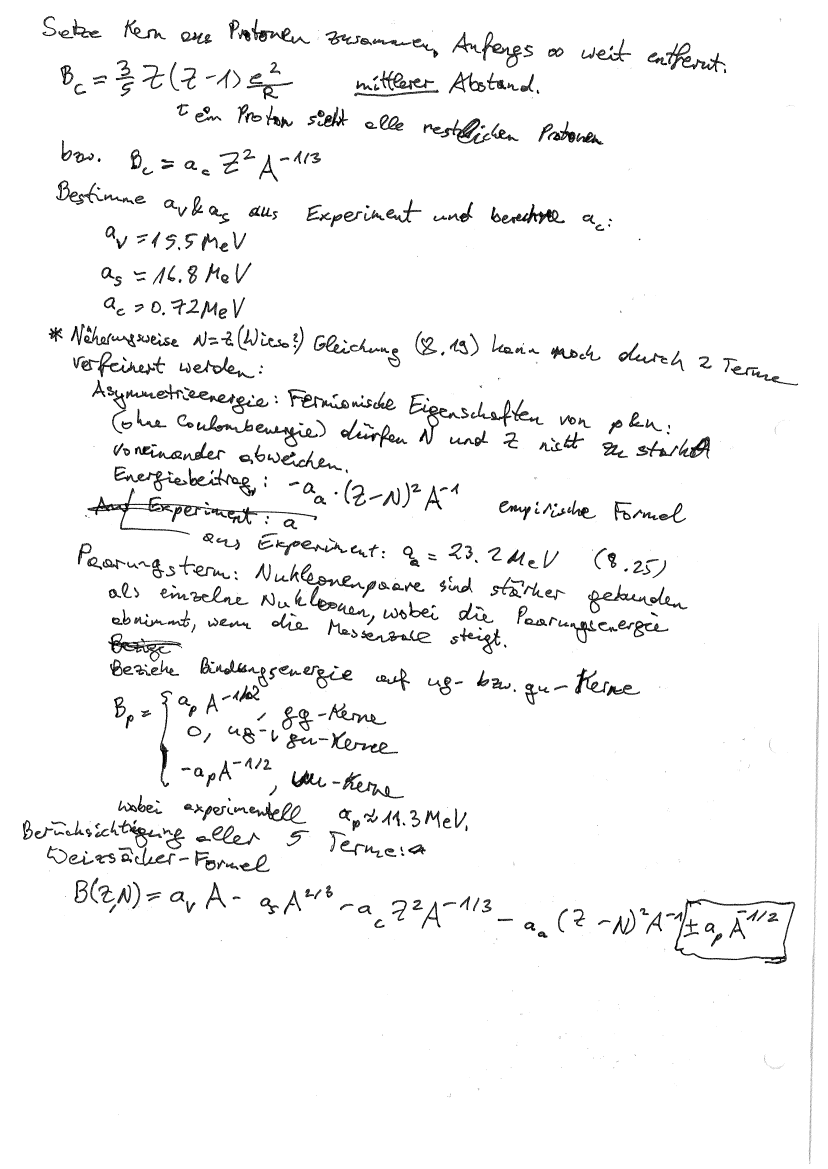 Setze Kern aus Protonen zusammen, Anfangs ∞ weit entfernt.
B_c = 3/5 Z(Z-1) e²/R   mittlerer Abstand.
ein Proton sieht alle restlichen Protonen
bzw. B_c = a_c Z² A^{-1/3}
Bestimme a_v & a_s aus Experiment und berechne a_c:
a_v = 15.5 MeV
a_s = 16.8 MeV
a_c = 0.72 MeV
* Näherungsweise N=Z (Wieso?) Gleichung (8.19) kann noch durch 2 Terme
verfeinert werden:
Asymmetrieenergie: Fermionische Eigenschaften von p&n:
(ohne Coulombenergie) dürfen N und Z nicht zu stark
voneinander abweichen.
Energiebeitrag: -a_a · (Z-N)² A^{-1}   empirische Formel
Auf Experiment: a
aus Experiment: a_a = 23.2 MeV (8.25)
Paarungsterm: Nukleonenpaare sind stärker gebunden
als einzelne Nukleonen, wobei die Paarungsenergie
abnimmt, wenn die Massenzahl steigt.
Bezüge
Beziehe Bindungsenergie auf ug- bzw. gu-Kerne
B_p = { a_p A^{-1/2}, gg-Kerne
0, ug-, gu-Kerne
-a_p A^{-1/2}, uu-Kerne
wobei experimentell a_p ≈ 11.3 MeV.
Berücksichtigung aller 5 Terme:
Weizsäcker-Formel
B(Z,N) = a_v A - a_s A^{2/3} - a_c Z² A^{-1/3} - a_a (Z-N)² A^{-1} ± a_p A^{-1/2}